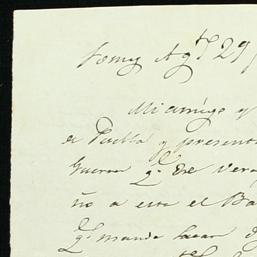 Agt 29
Mi amigo y
de Puebla y present
Guerra q. de Vera
ño a esta el Ba
q. manda sacar